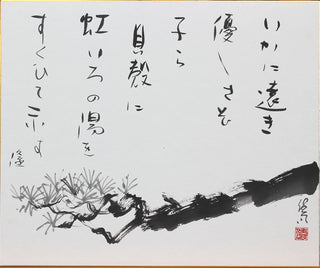 いかに遠き
優しさぞ
子ら
貝殻に
虹いろの湯を
すくひて示す